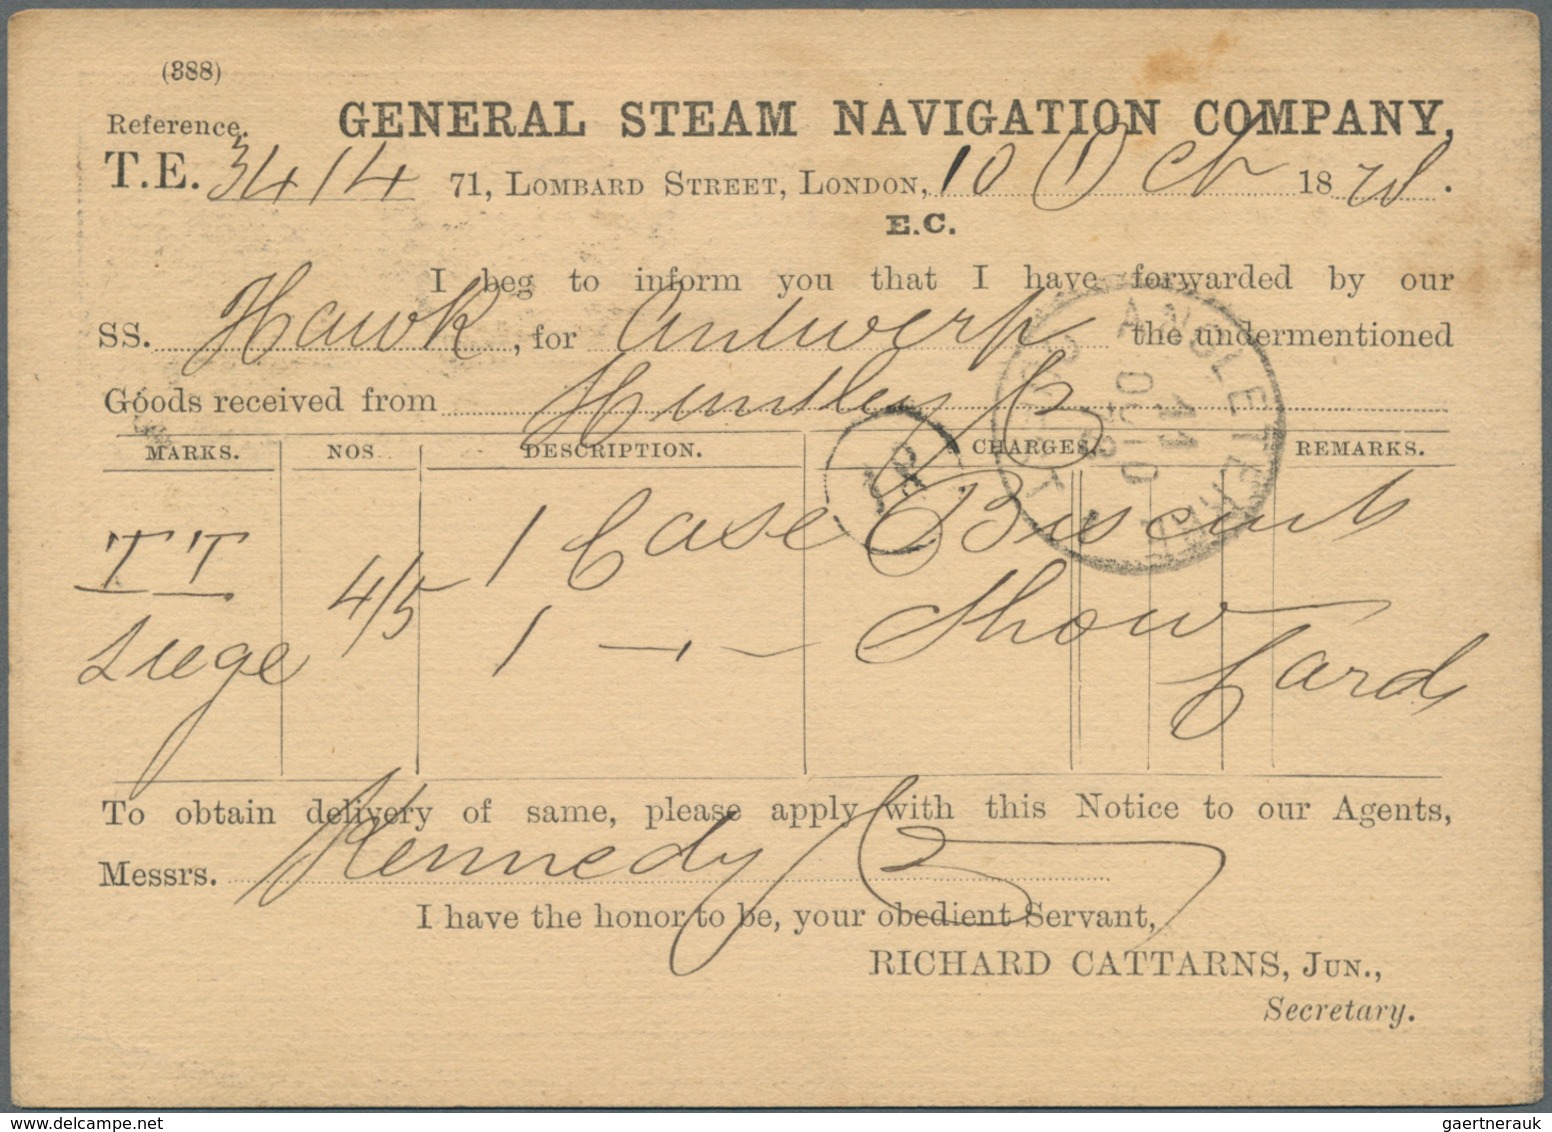 (388)
Reference. GENERAL STEAM NAVIGATION COMPANY,
T.E. 3414 71, LOMBARD STREET, LONDON, 10 Oct 1878.
E.C.
I beg to inform you that I have forwarded by our
SS. Hawk, for Antwerp the undermentioned
Goods received from Huntley
MARKS. NOS DESCRIPTION. CHARGES. REMARKS.
TT 4/5 1 Case Biscuits
Liege 1 -,,- Show Cards
To obtain delivery of same, please apply with this Notice to our Agents,
Messrs. Kennedy
I have the honor to be, your obedient Servant,
RICHARD CATTARNS, JUN.,
Secretary.
ANGLETERRE
11 OCT
gaertnerauk / delcampe.net